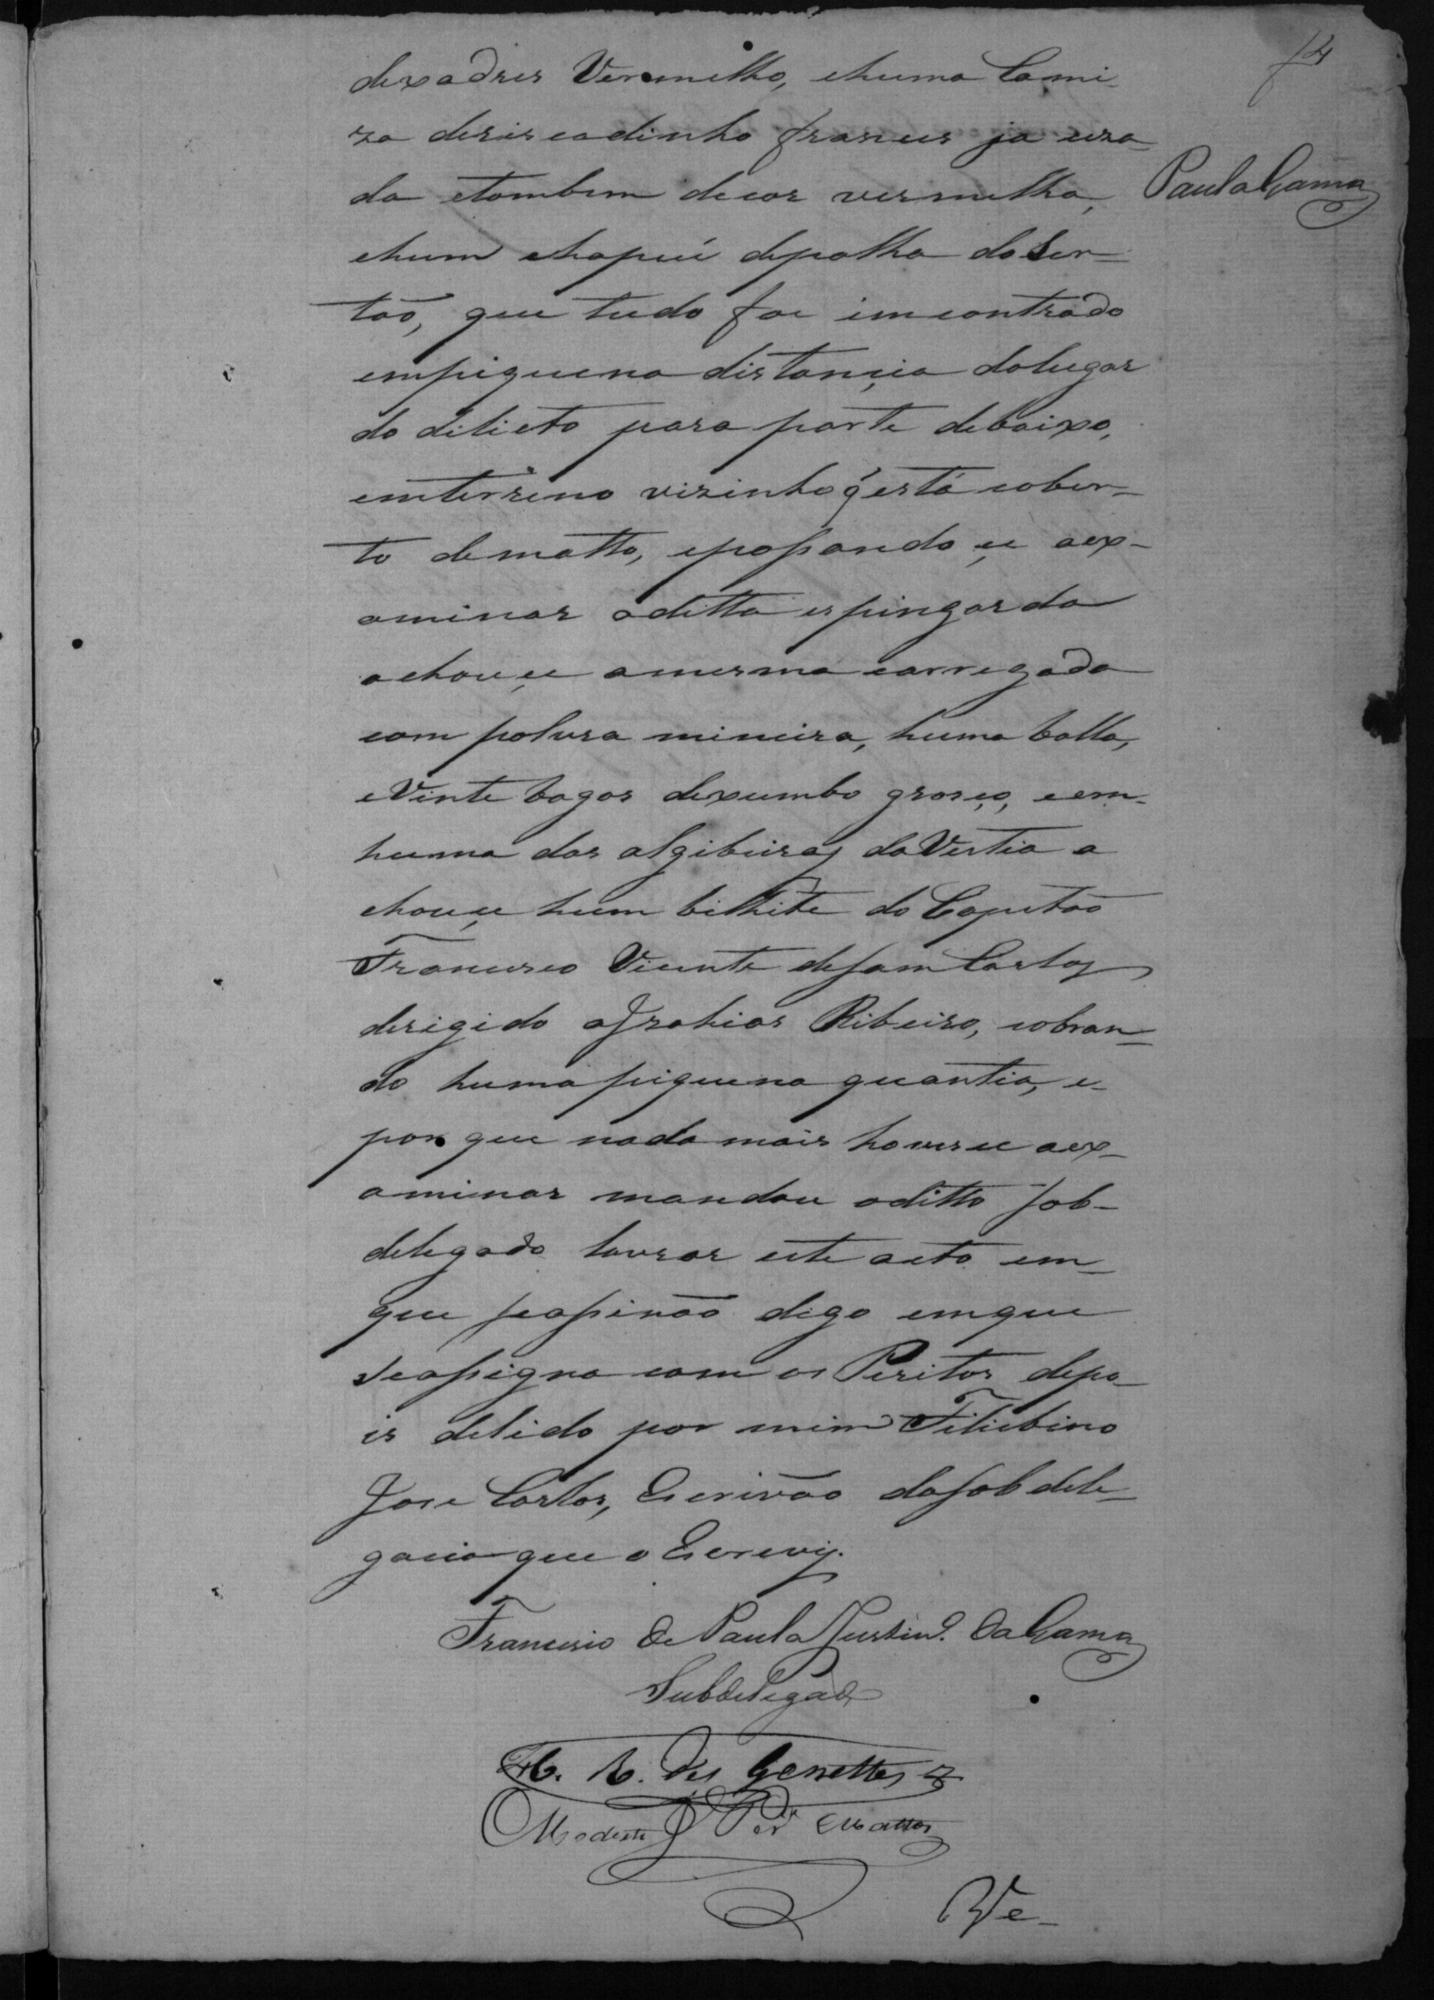 4
Paula Gama
dexadres Vermelho, ehuma Cami-
za deriscadinho frances ja uza-
da etambem decor vermelha,
ehum chapeú depalha doSer-
taõ, que tudo foe imcontrado
empiquena distançia dolugar
do dilicto para parte debaixo,
emterreno vizinho q' está cober-
to dematto, epassando çe aex-
aminar aditta espingarda
achouçe amesma carregada
com polvra mineira, huma balla,
eVinte bagos dexumbo groço, eem-
huma das algibeiras daVestia a
chouçe hum bilhete do Capitaõ
Francisco Vicente deSam Carlos
derigido aIzahias Ribeiro, cobran-
do huma piquena quantia, e-
por que nada mais houvese aex-
aminar mandou oditto Sob-
delegado lavrar este aoto em-
que seassinaõ digo emque
seassigna com os Peritos depo-
is delido por mim Filisbino
Jose Carlos, Escrivaõ daSobdele-
gacia que o Escrevy.
Francisco de Paula Justin.o da Gama
Subdelegado
H. R. des Genettes
Modesto J.e Per.a Mattos
Ve-